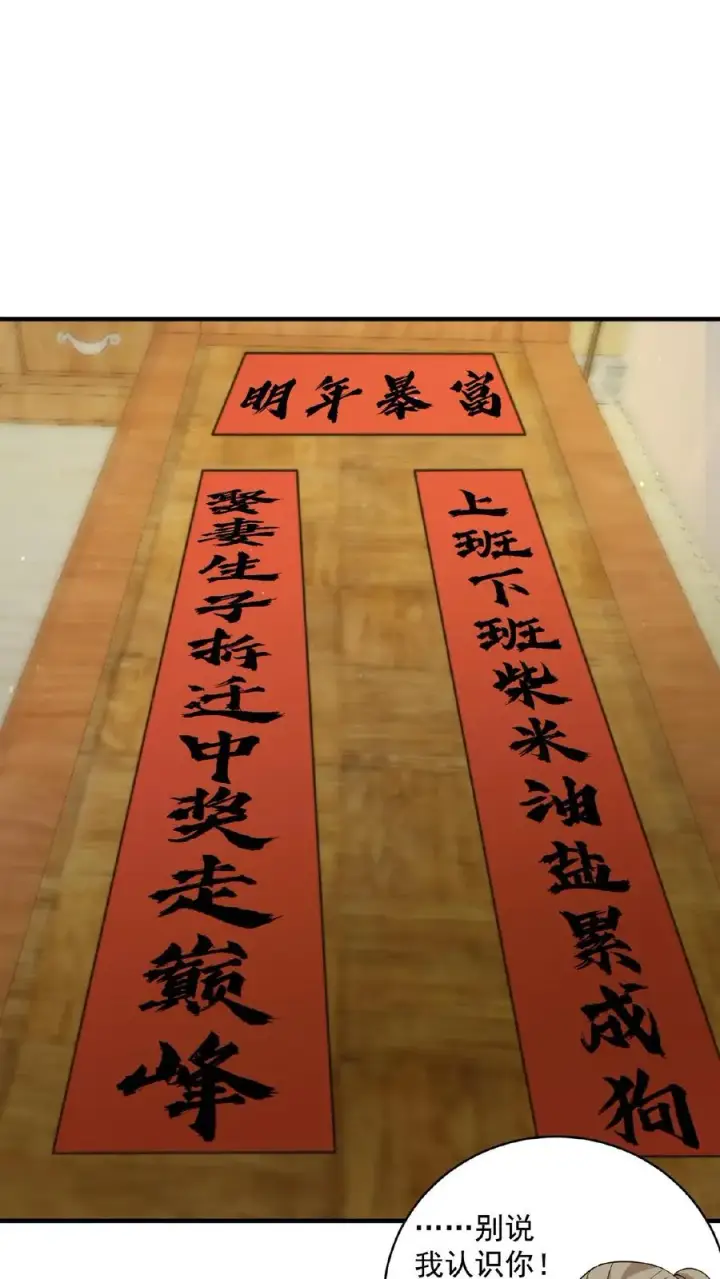 明年暴富
上班下班柴米油盐累成狗
娶妻生子拆迁中奖走巅峰
……别说
我认识你！